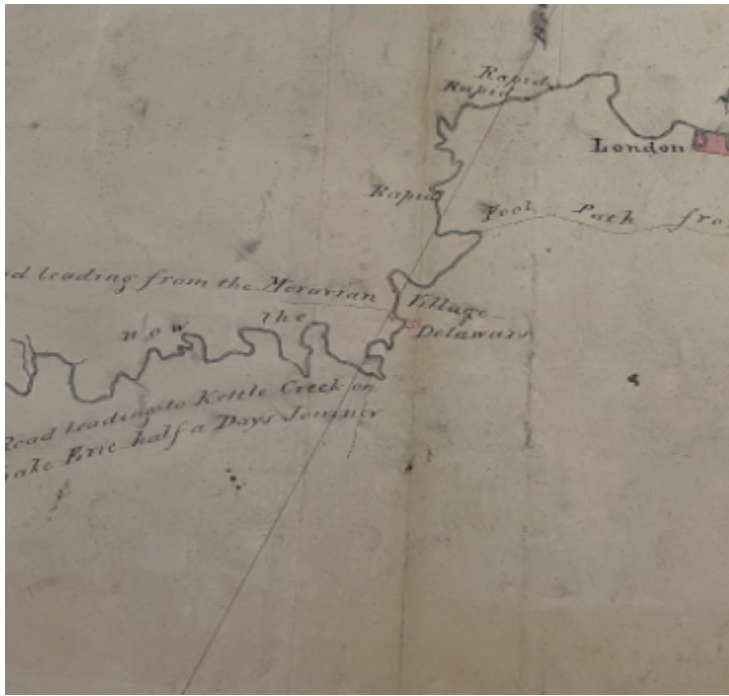 Rapid
Rapid
London
Rapid
Foot Path fro
ad leading from the Moravian Village
Delawars
now the
Road leading to Kettle Creek on
Lake Erie half a Days Journey